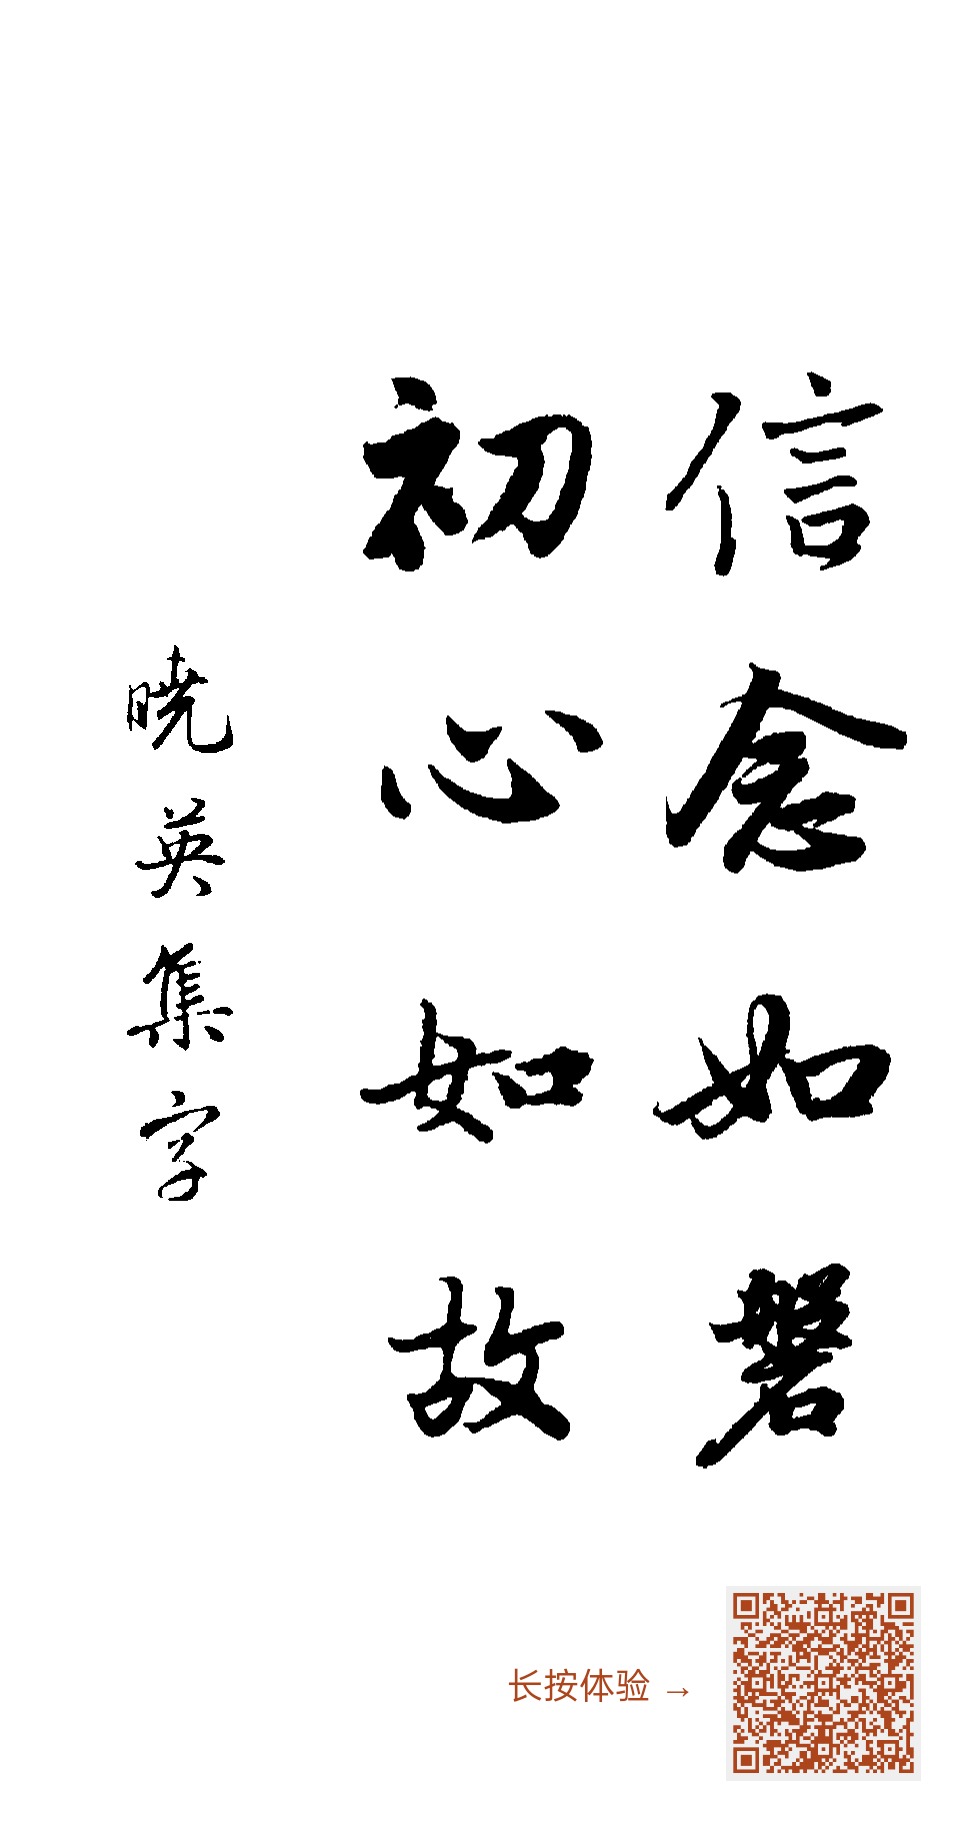 信念如磐
初心如故
曉英集字
长按体验 →